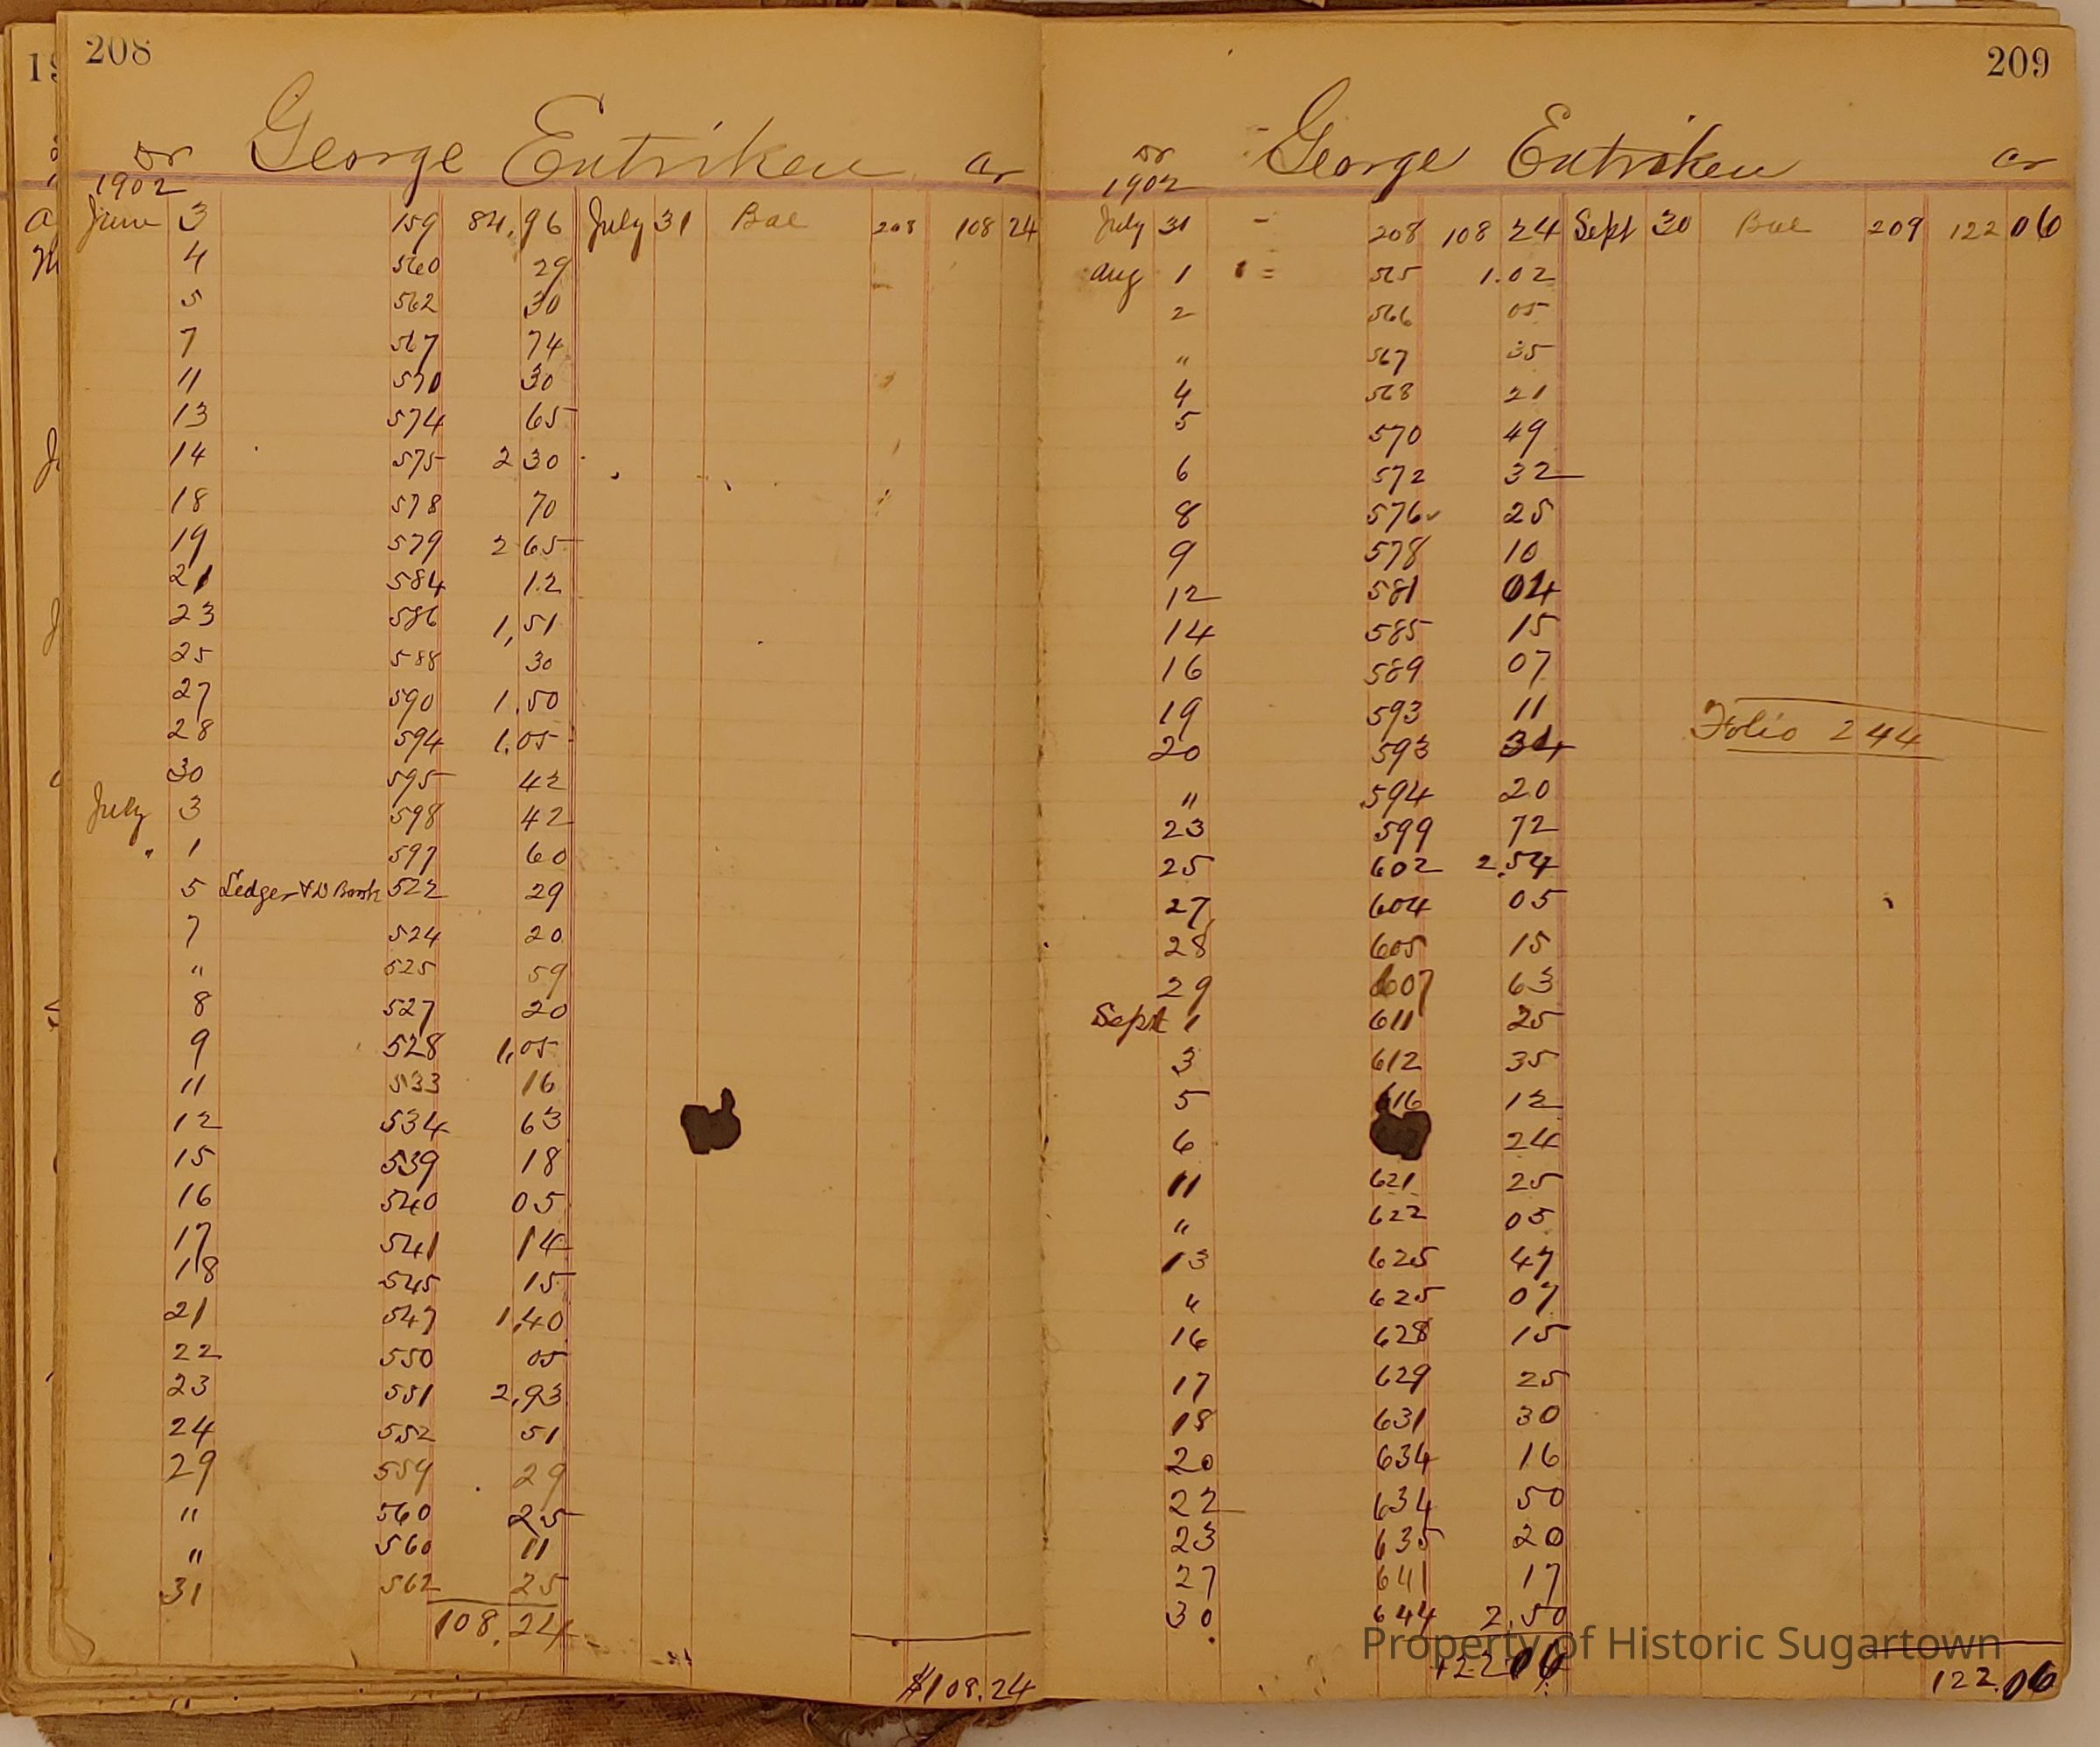 208
Dr George Entriken Cr
1902
June 3 159 84,96 July 31 Bal 208 108 24
4 560 29
5 562 30
7 567 74
11 570 30
13 574 65
14 575 2 30
18 578 70
19 579 2 65
21 584 12
23 586 1,51
25 588 30
27 590 1.50
28 594 1.05
30 595 42
July 3 598 42
" 1 597 60
5 Ledger & D Book 522 29
7 524 20
" 525 59
8 527 20
9 528 1,05
11 533 16
12 534 63
15 539 18
16 540 05
17 541 14
18 545 15
21 547 1,40
22 550 05
23 551 2,93
24 552 51
29 559 29
" 560 25
" 560 11
31 562 25
108.24
$108.24
209
Dr George Entriken Cr
1902
July 31 208 108 24 Sept 30 Bal 209 122 06
Aug 1 565 1.02
2 566 05
" 567 35
4 568 21
5 570 49
6 572 32
8 576 25
9 578 10
12 581 04
14 585 15
16 589 07
19 593 11
20 593 34
Folio 244
" 594 20
23 599 72
25 602 2.54
27 604 05
28 605 15
29 607 63
Sept 1 611 25
3 612 35
5 616 12
6 24
11 621 25
" 622 05
13 625 47
" 625 07
16 628 15
17 629 25
18 631 30
20 634 16
22 634 50
23 635 20
27 641 17
30 644 2.50
122 06
122.06
Property of Historic Sugartown